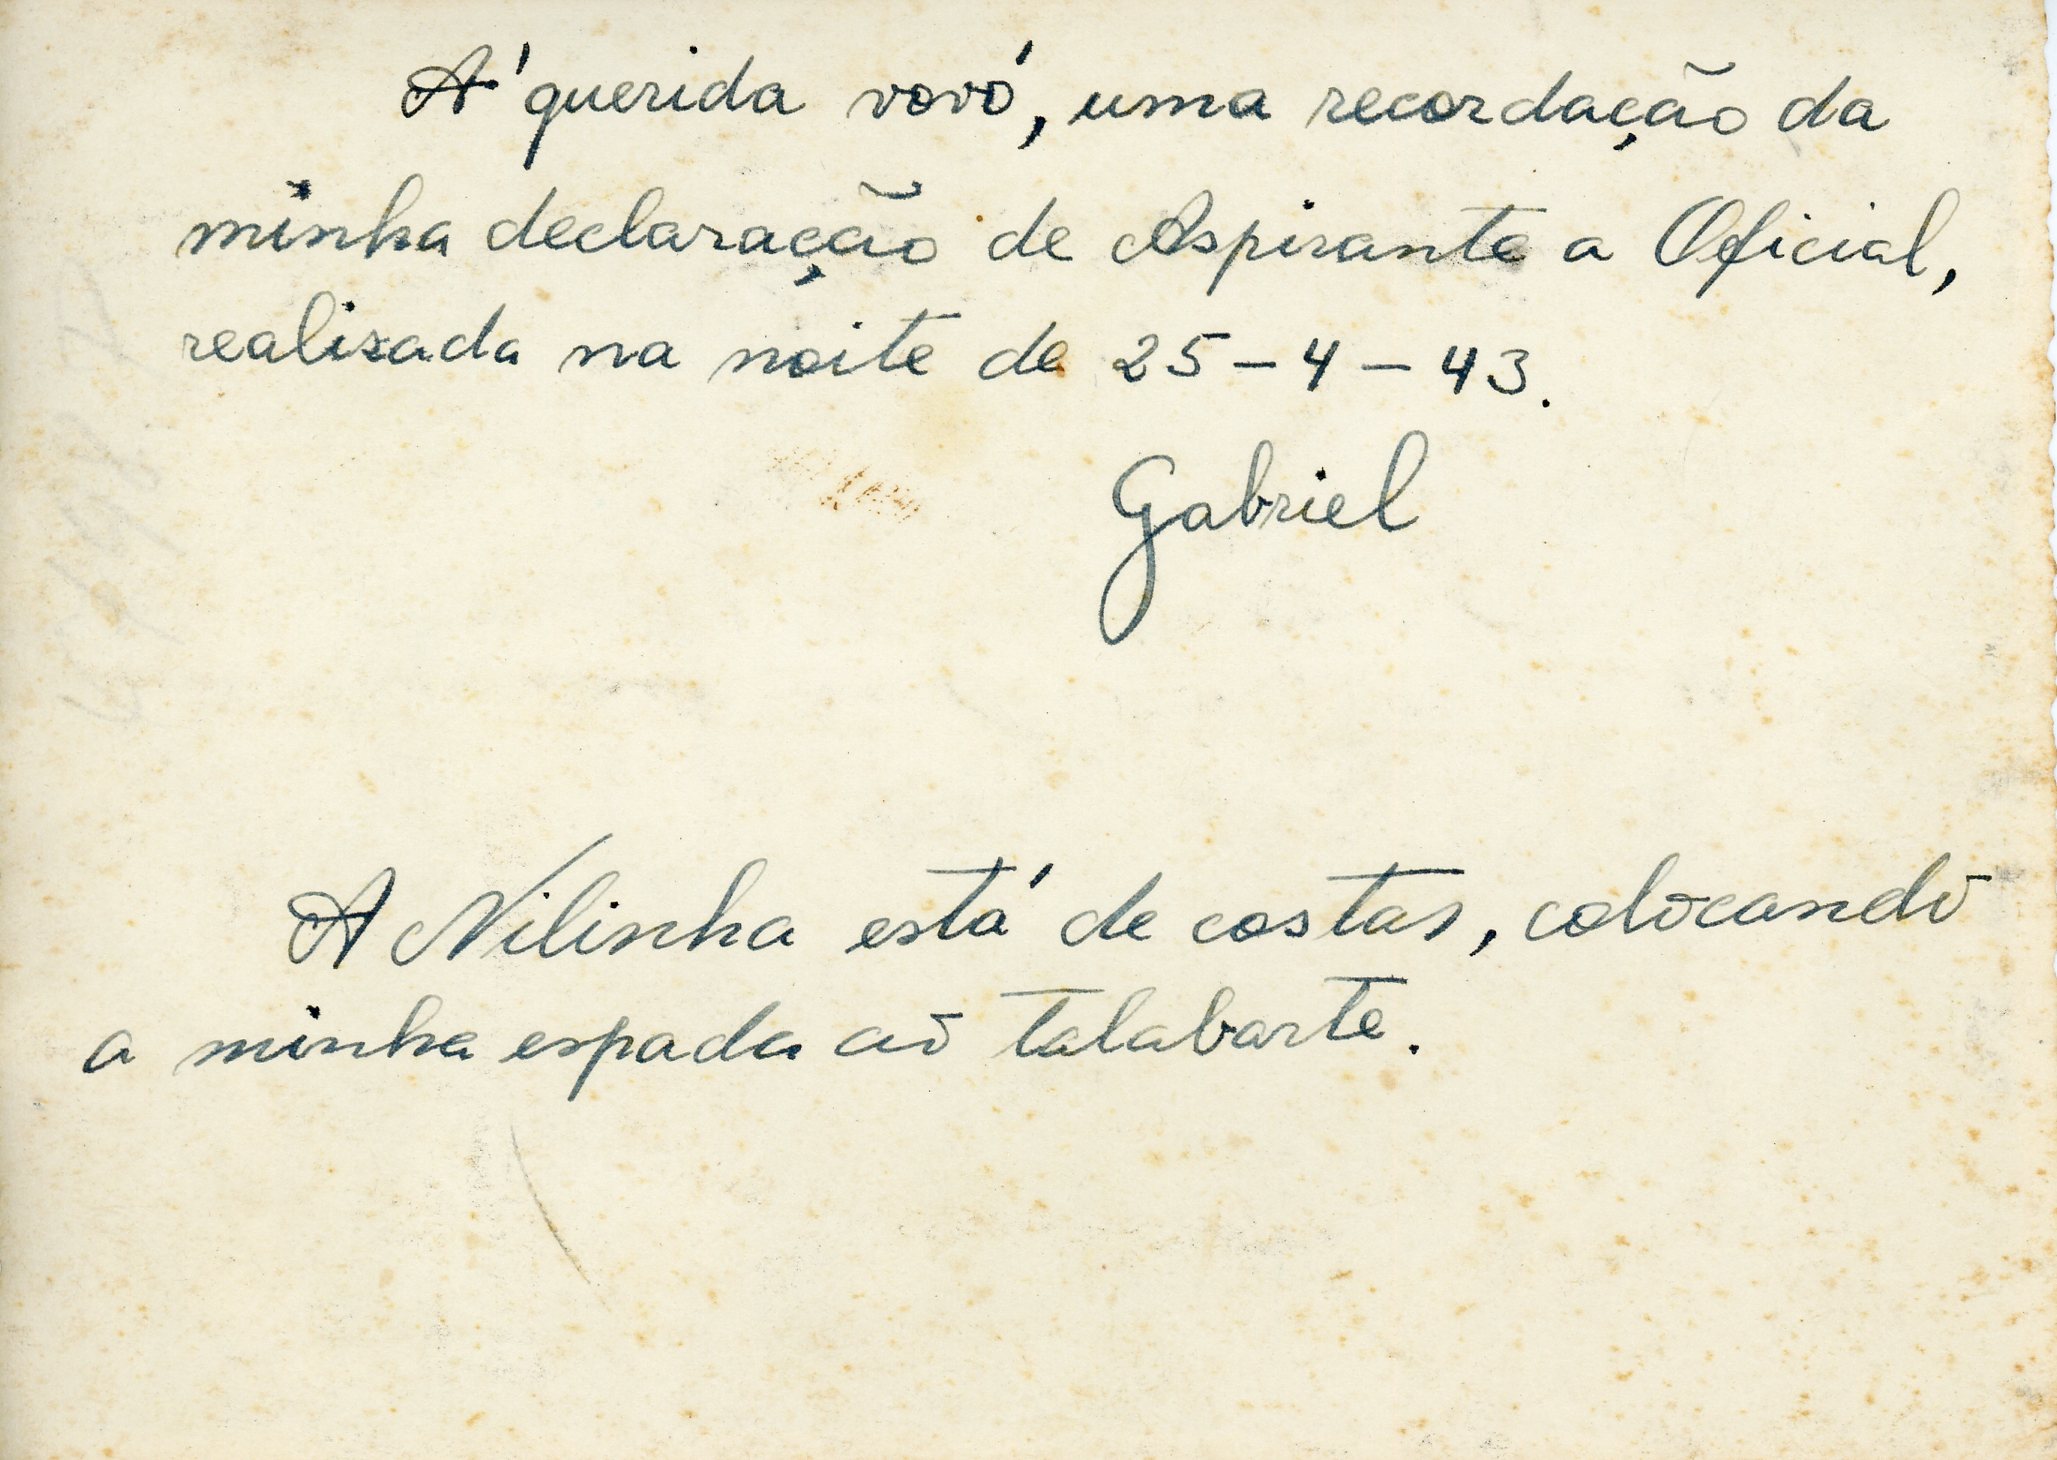 A' querida vovó, uma recordação da
minha declaração de Aspirante a Oficial,
realisada na noite de 25-4-43.
Gabriel
A Nilinha está de costas, colocando
a minha espada ao talabarte.